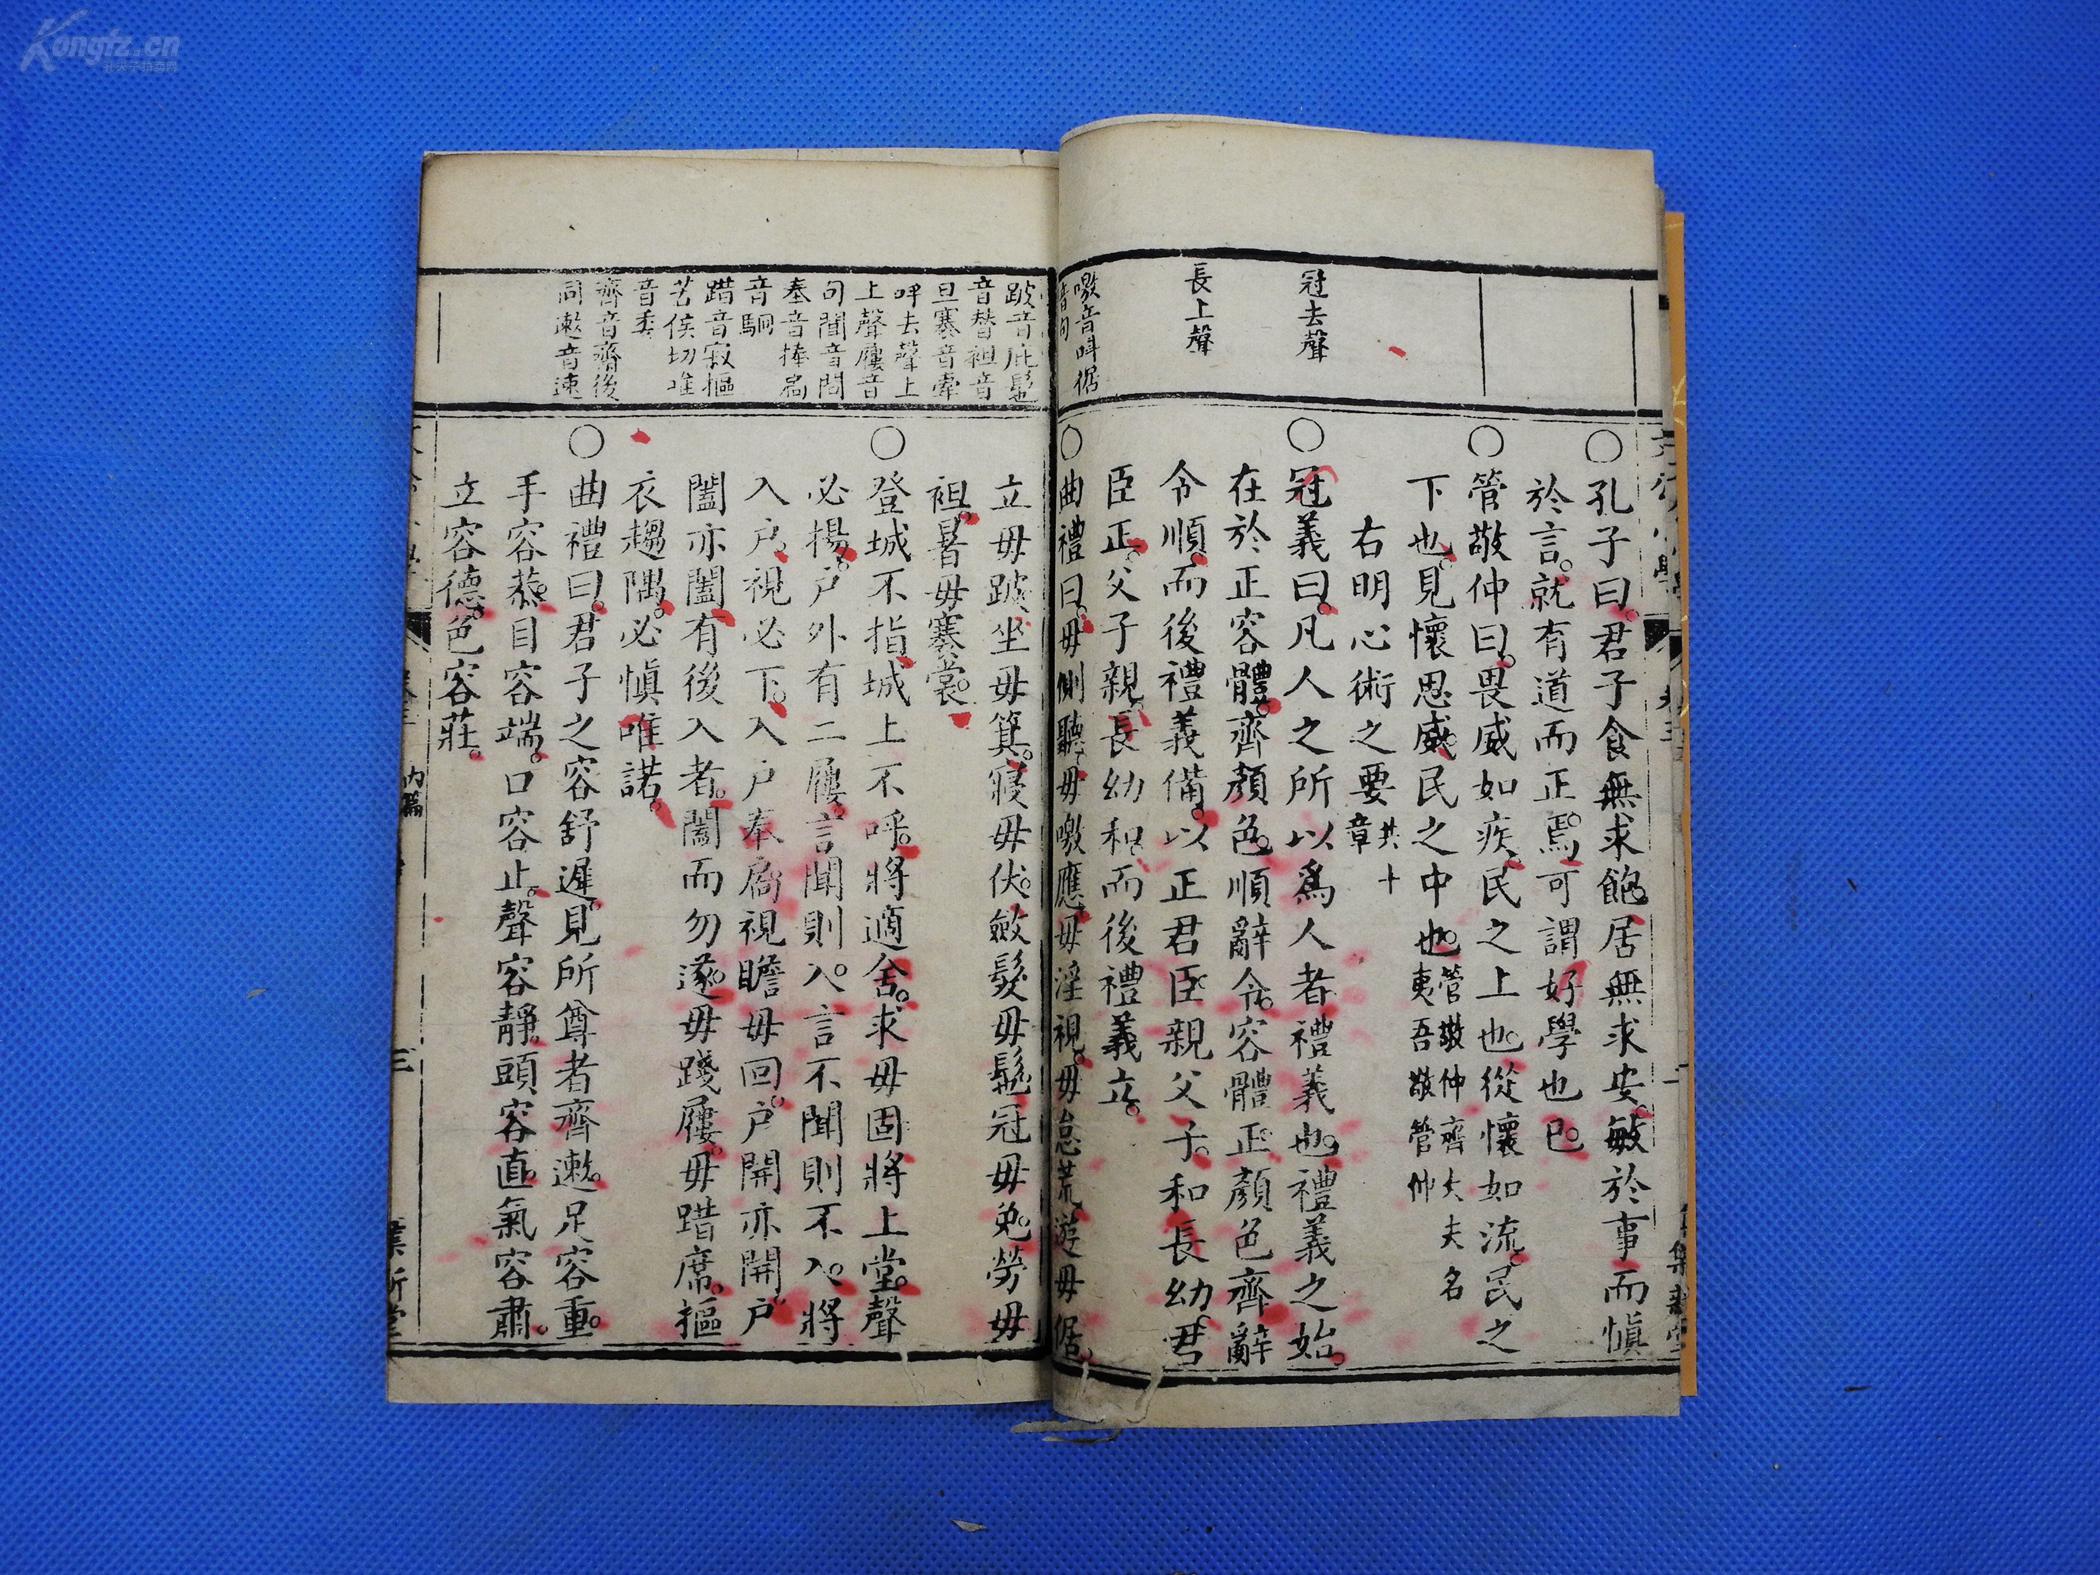 Kongfz.cn
孔夫子拍卖网
冠去聲
長上聲
噭音呌倨
音句
○孔子曰君子食無求飽居無求安敏於事而慎
於言就有道而正焉可謂好學也已
○管敬仲曰畏威如疾民之上也從懷如流民之
下也見懷思威民之中也管敬仲齊大夫名
夷吾敬管仲
右明心術之要共十
章
○冠義曰凡人之所以爲人者禮義也禮義之始
在於正容體齊顏色順辭令容體正顏色齊辭
令順而後禮義備以正君臣親父子和長幼君
臣正父子親長幼和而後禮義立
○曲禮曰毋側聽毋噭應毋淫視毋怠荒遊毋倨
跛音庇髢
音替袒音
旦褰音牽
呼去聲上
上聲屨音
句聞音問
奉音捧扃
音駉
踖音寂摳
苦侯切唯
音委
齊音齋後
同遬音速
立毋跛坐毋箕寢毋伏斂髮毋髢冠毋免勞毋
袒暑毋褰裳
○登城不指城上不呼將適舍求毋固將上堂聲
必揚戶外有二屨言聞則入言不聞則不入將
入戶視必下入戶奉扃視瞻毋回戶開亦開戶
闔亦闔有後入者闔而勿遂毋踐屨毋踖席摳
衣趨隅必慎唯諾
○曲禮曰君子之容舒遲見所尊者齊遬足容重
手容恭目容端口容止聲容靜頭容直氣容肅
立容德色容莊
內篇
三